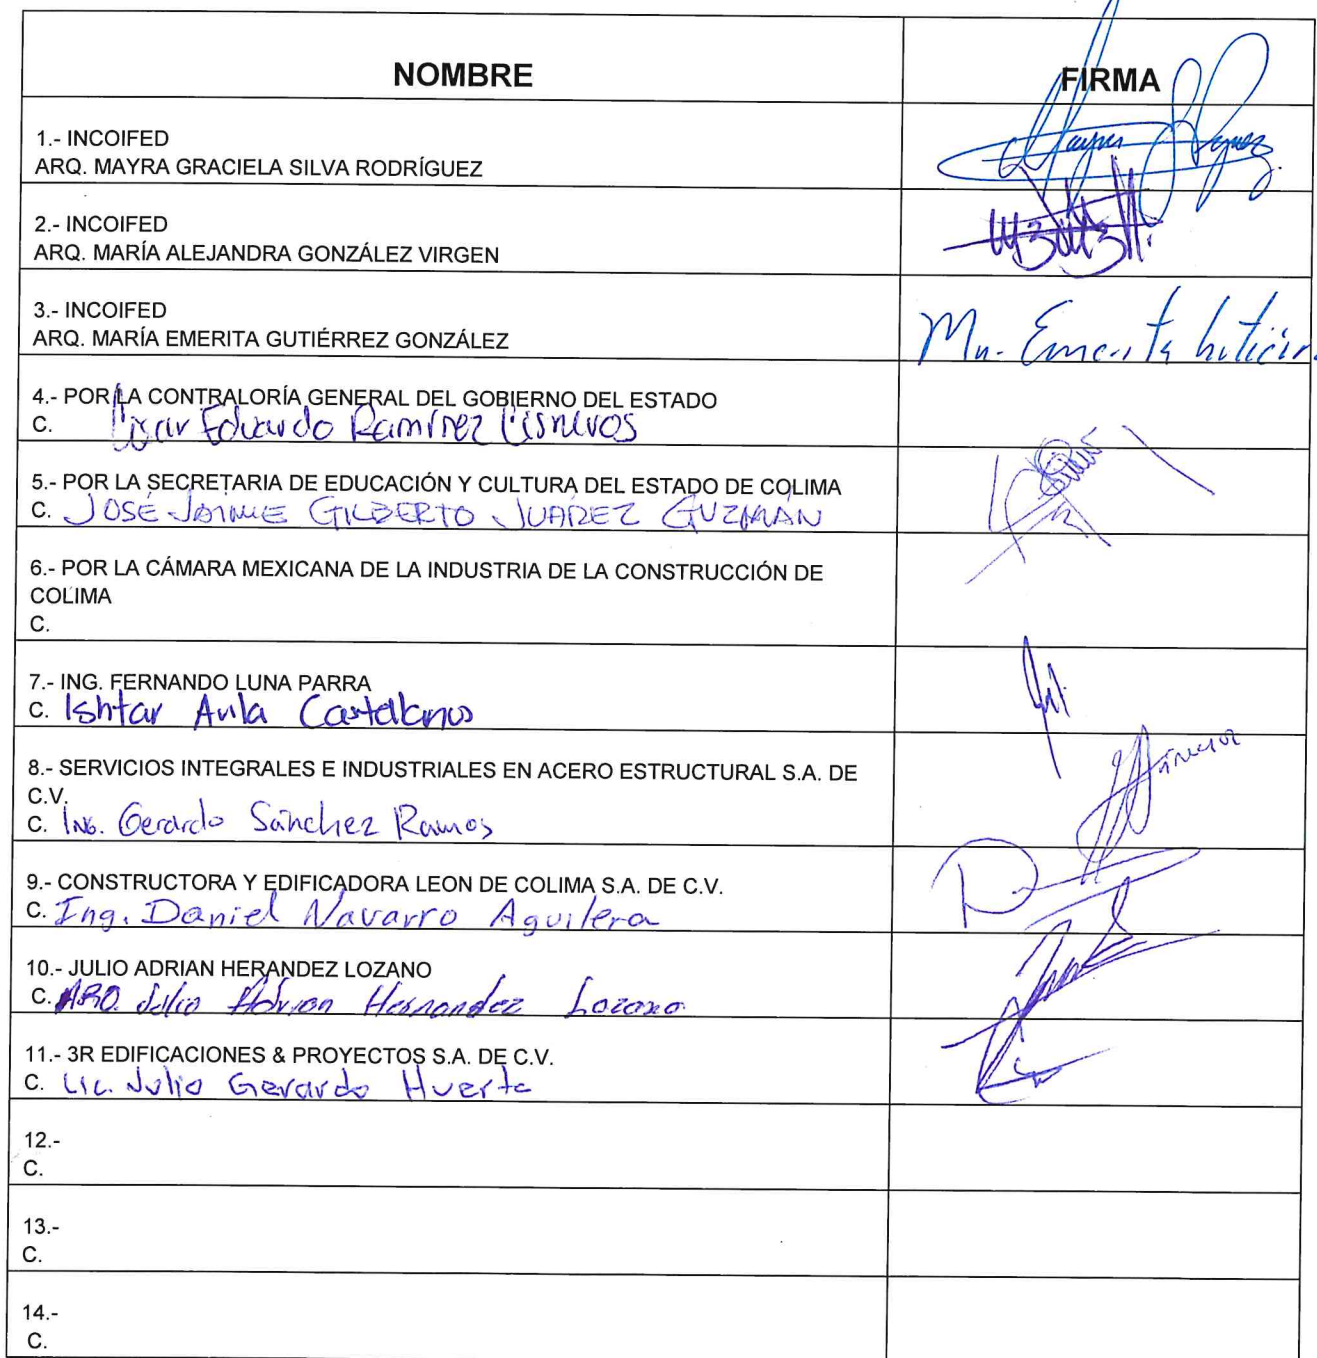 NOMBRE
FIRMA
1.- INCOIFED
ARQ. MAYRA GRACIELA SILVA RODRÍGUEZ
2.- INCOIFED
ARQ. MARÍA ALEJANDRA GONZÁLEZ VIRGEN
3.- INCOIFED
ARQ. MARÍA EMERITA GUTIÉRREZ GONZÁLEZ
Ma. Emerita
4.- POR LA CONTRALORÍA GENERAL DEL GOBIERNO DEL ESTADO
C. Eduardo Ramírez Cisneros
5.- POR LA SECRETARIA DE EDUCACIÓN Y CULTURA DEL ESTADO DE COLIMA
C. JOSÉ JAIME GILBERTO JUAREZ GUZMÁN
6.- POR LA CÁMARA MEXICANA DE LA INDUSTRIA DE LA CONSTRUCCIÓN DE
COLIMA
C.
7.- ING. FERNANDO LUNA PARRA
C. Ishtar Avila Castellanos
8.- SERVICIOS INTEGRALES E INDUSTRIALES EN ACERO ESTRUCTURAL S.A. DE
C.V.
C. ING. Gerardo Sánchez Ramos
9.- CONSTRUCTORA Y EDIFICADORA LEON DE COLIMA S.A. DE C.V.
C. Ing. Daniel Navarro Aguilera
10.- JULIO ADRIAN HERANDEZ LOZANO
C. ARQ. Julio Adrian Hernandez Lozano
11.- 3R EDIFICACIONES & PROYECTOS S.A. DE C.V.
C. Lic. Julio Gerardo Huerta
12.-
C.
13.-
C.
14.-
C.